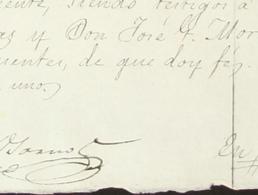 ente, siendo testigos á
as y Don José F. Mor
uentes, de que doy fé.
uno.